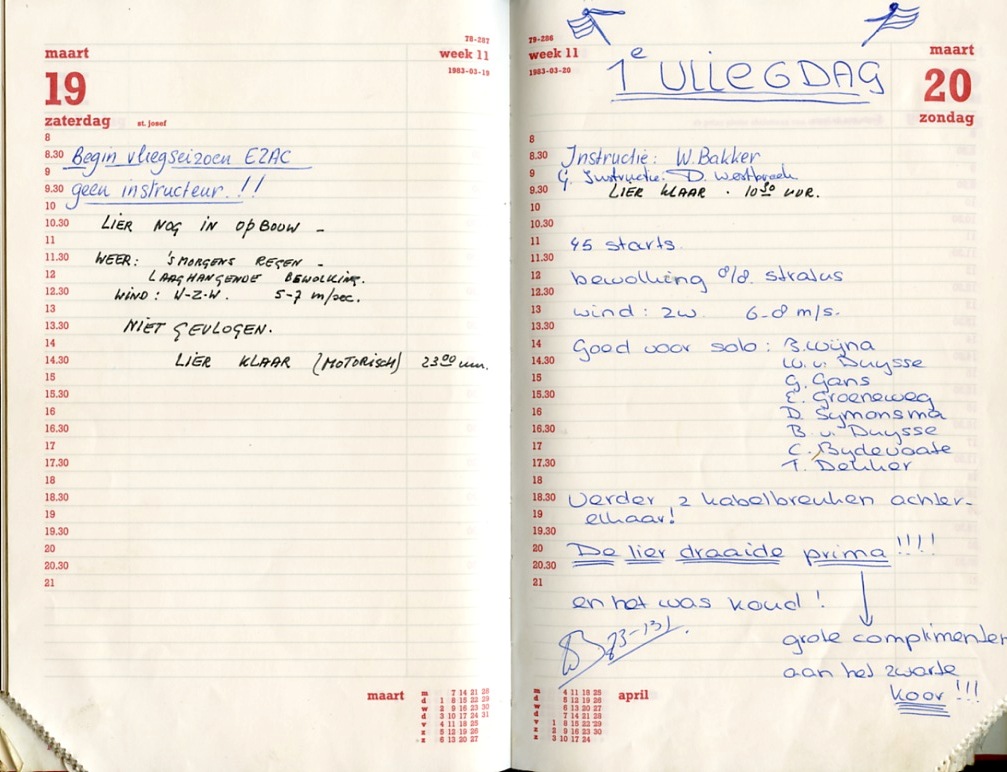 maart
78-287
week 11
19
1983-03-19
zaterdag
st. josef
8
8.30 Begin vliegseizoen EZAC
9
9.30 geen instructeur.!!
10
10.30 LIER NOG IN OPBOUW -
11
11.30 WEER: 'SMORGENS REGEN -
12 LAAGHANGENDE BEWOLKING.
12.30 WIND: W-Z-W. 5-7 m/sec.
13
13.30 NIET GEVLOGEN.
14
14.30 LIER KLAAR (MOTORISCH) 23.00 uur.
15
15.30
16
16.30
17
17.30
18
18.30
19
19.30
20
20.30
21
maart
m 7 14 21 28
d 1 8 15 22 29
w 2 9 16 23 30
d 3 10 17 24 31
v 4 11 18 25
z 5 12 19 26
z 6 13 20 27
79-286
week 11
1983-03-20
1e VLIEGDAG
maart
20
zondag
8
8.30 Instructie: W. Bakker
9 G. Instructie: D. Westbroek
9.30 LIER KLAAR. 10 30 UUR.
10
10.30
11 45 starts
11.30
12 bewolking 8/8. stratus
12.30
13 wind: zw. 6-8 m/s.
13.30
14 Goed voor solo: B. Wijna
14.30 W. v. Duysse
15 G. Gans
15.30 E. Groeneweg
16 D. Symonsma
16.30 B. v. Duysse
17 C. Bydevaate
17.30 T. Dekker
18
18.30 Verder 2 kabelbreuken achter-
19 elkaar!
19.30
20 De lier draaide prima!!!!
20.30
21
en het was koud!
grote complimenten
aan het zwarte
koor!!!
april
m 4 11 18 25
d 5 12 19 26
w 6 13 20 27
d 7 14 21 28
v 1 8 15 22 29
z 2 9 16 23 30
z 3 10 17 24